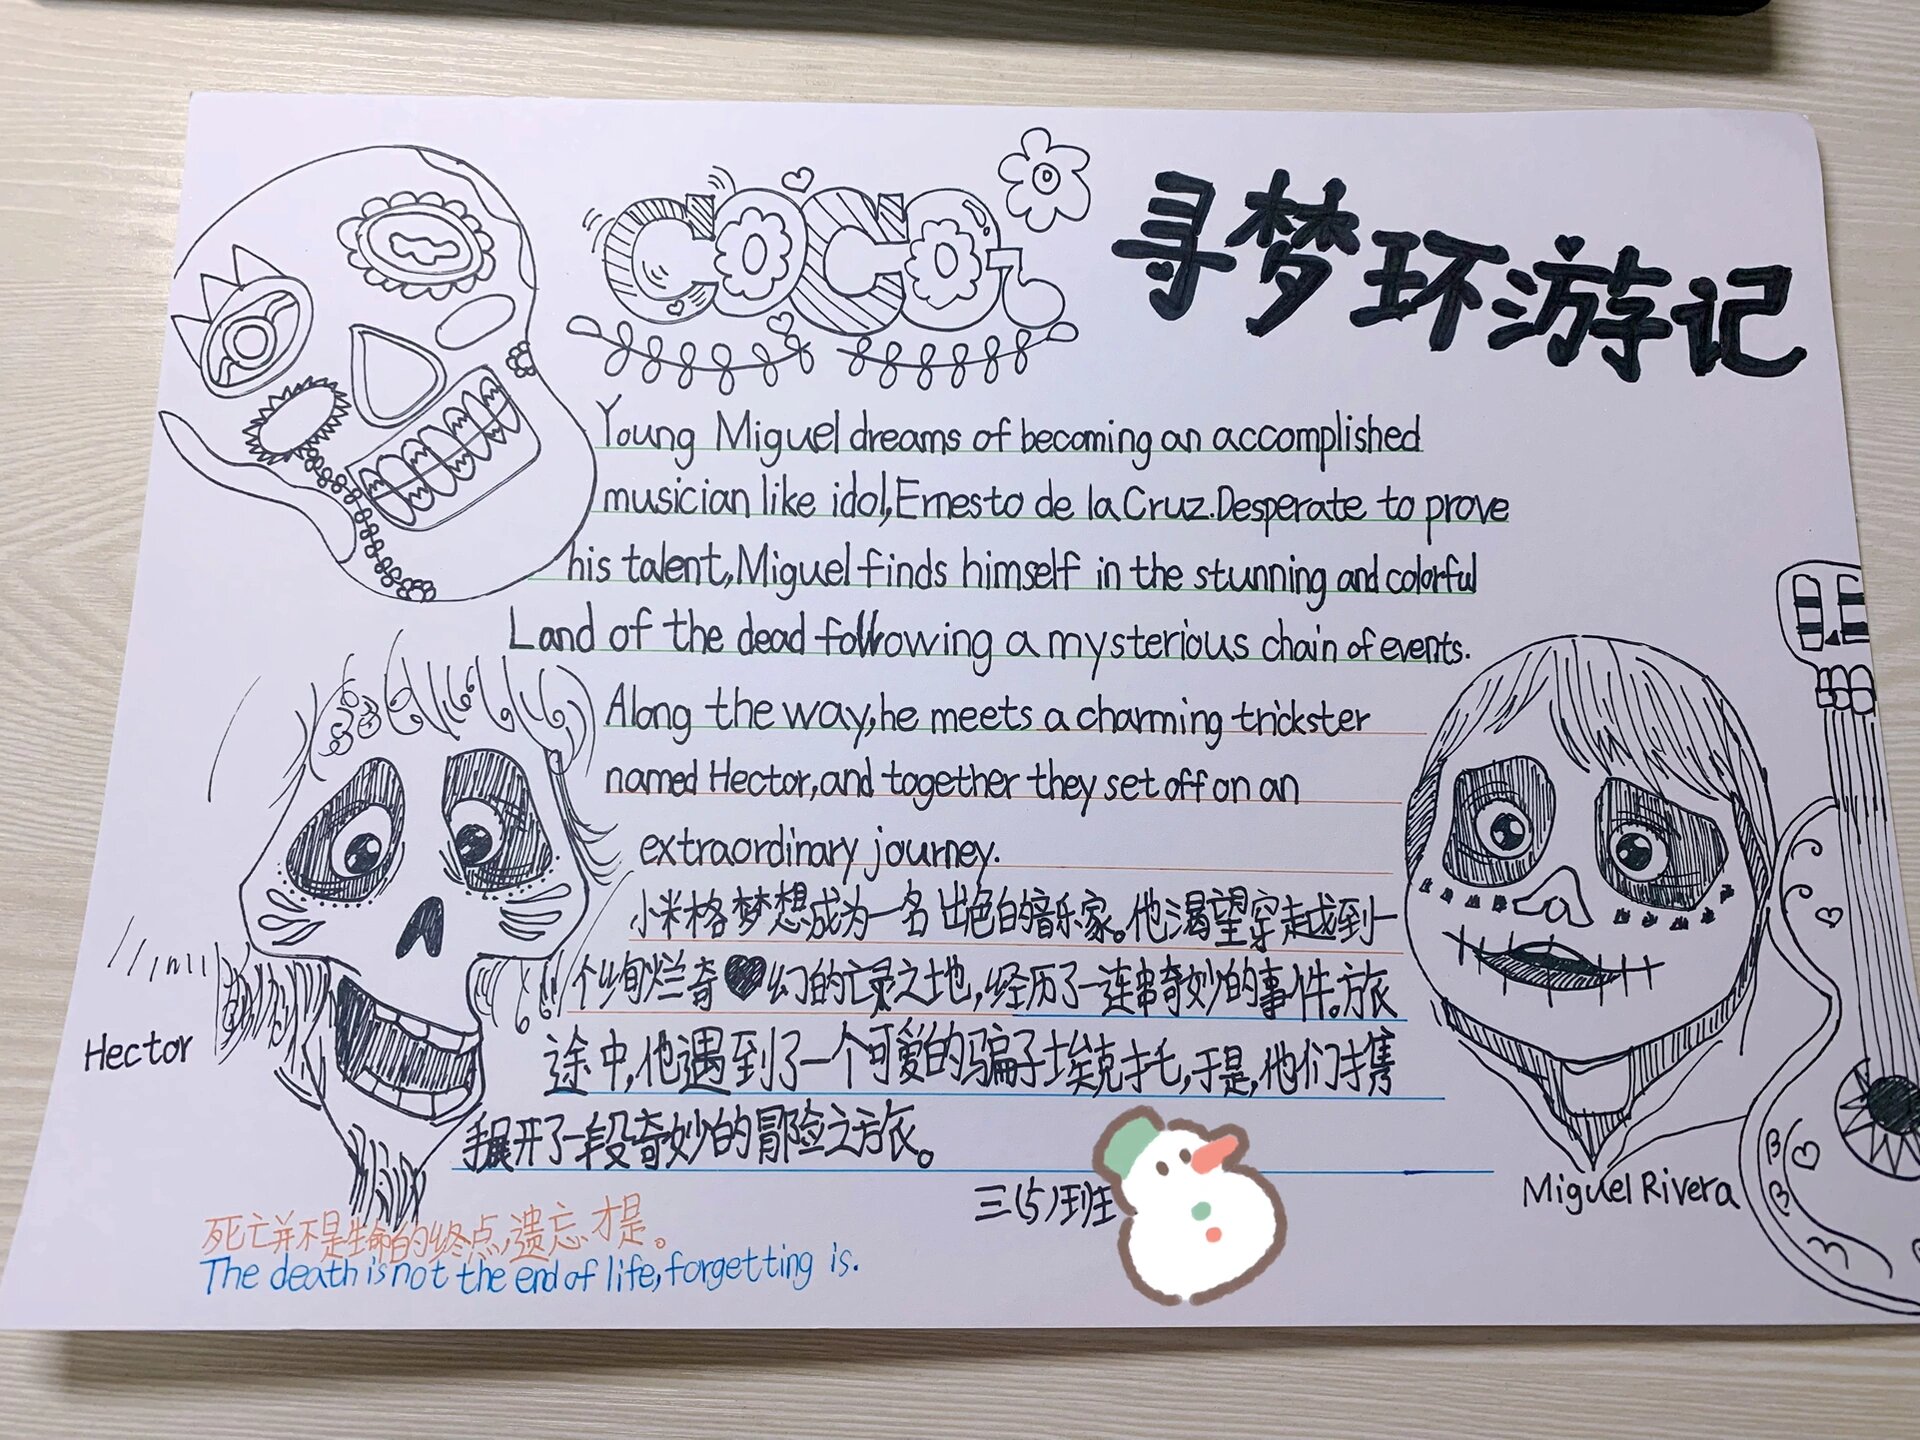 COCO
寻梦环游记
Young Miguel dreams of becoming an accomplished
musician like idol, Ernesto de la Cruz. Desperate to prove
his talent, Miguel finds himself in the stunning and colorful
Land of the dead following a mysterious chain of events.
Along the way, he meets a charming trickster
named Hector, and together they set off on an
extraordinary journey.
小米格梦想成为一名出色的音乐家。他渴望穿越到一
个绚烂奇幻的亡灵之地,经历了一连串奇妙的事件。旅
途中,他遇到了一个可爱的骗子埃克托,于是,他们才携
手展开了一段奇妙的冒险之旅。
Hector
Miguel Rivera
三(5)班
死亡并不是生命的终点,遗忘才是。
The death is not the end of life, forgetting is.